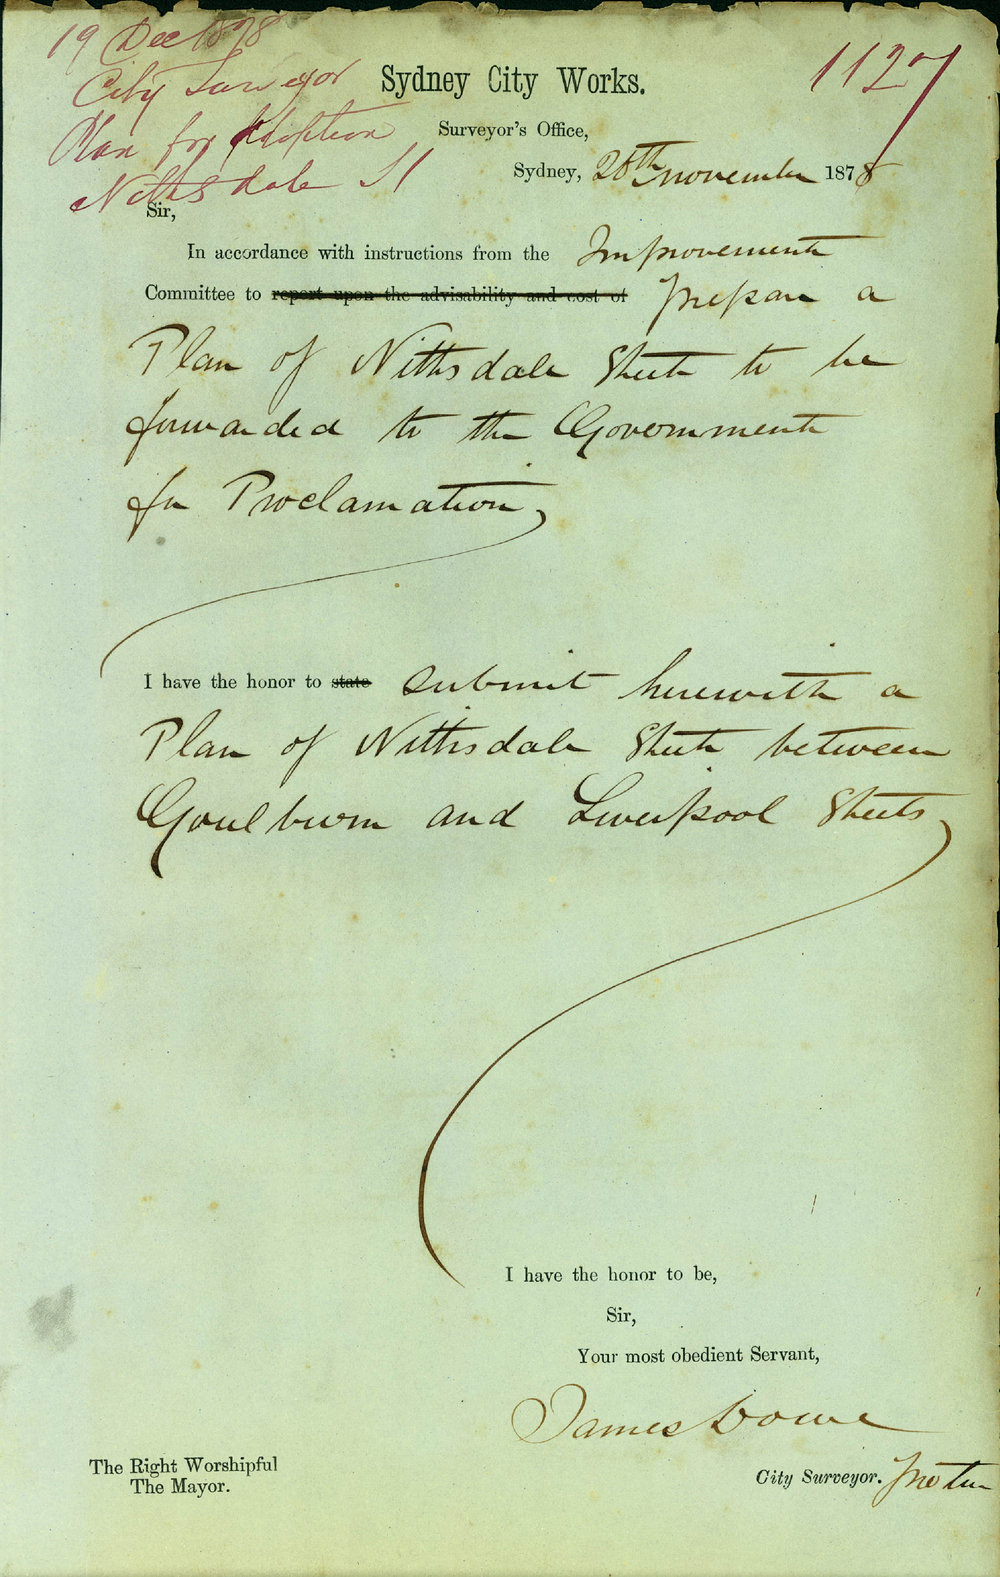 19 Dec 1878
City Surveyor
Plan for Adoption
Nithsdale St
1127
Sydney City Works.
Surveyor's Office,
Sydney, 28th November 1878
Sir,
In accordance with instructions from the Improvement
Committee to report upon the advisability and cost of prepare a
Plan of Nithsdale Street to be
forwarded to the Government
for Proclamation,
I have the honor to state submit herewith a
Plan of Nithsdale Street between
Goulburn and Liverpool Streets,
I have the honor to be,
Sir,
Your most obedient Servant,
James
The Right Worshipful
The Mayor.
City Surveyor. Pro tem